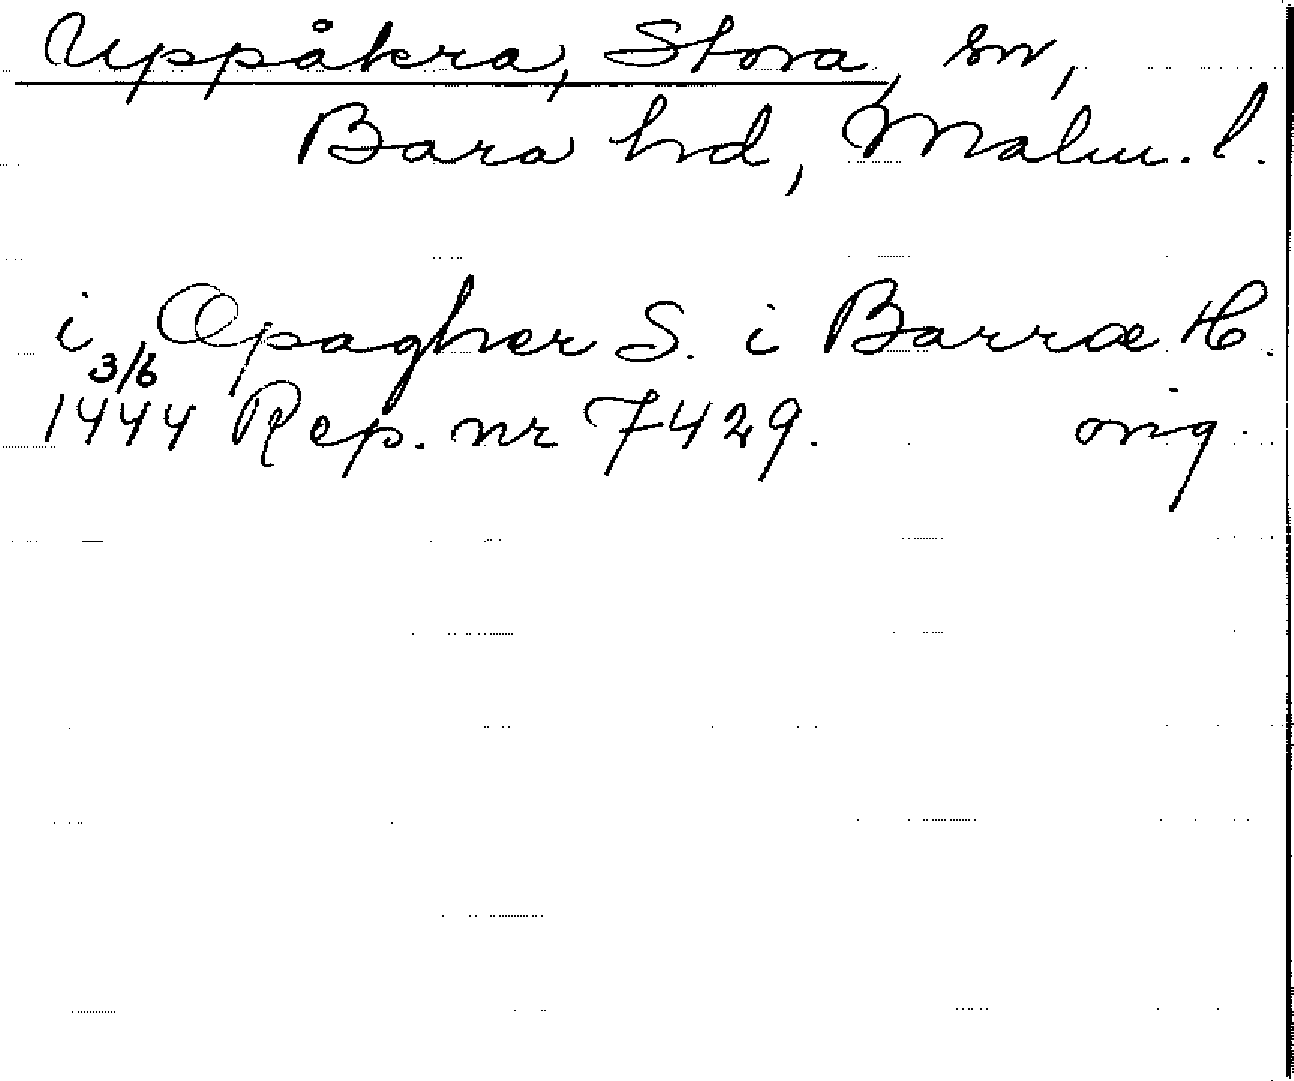 Uppåkra, Stora, sn,
Bara hd, Malm. l.
i Opagher S. i Barræ H.
3/6
1444 Rep. nr 7429. orig.